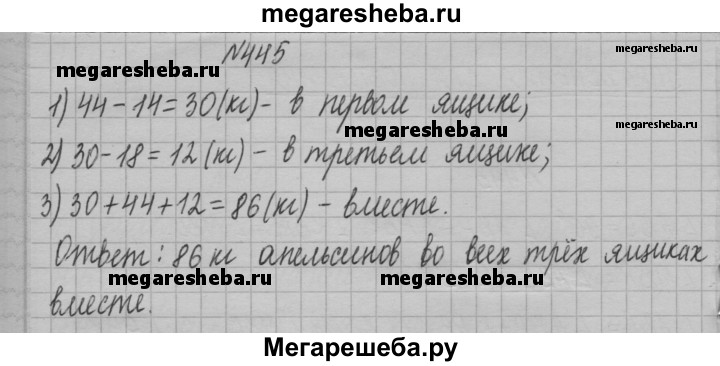 megaresheba.ru
№445
megaresheba.ru
megaresheba.ru
1) 44-14=30(кг)- в первом ящике;
megaresheba.ru
2) 30-18=12(кг)- в третьем ящике;
3) 30+44+12=86(кг)- вместе.
Ответ: 86 кг апельсинов во всех трёх ящиках
megaresheba.ru
megaresheba.ru
вместе.
Мегарешеба.ру